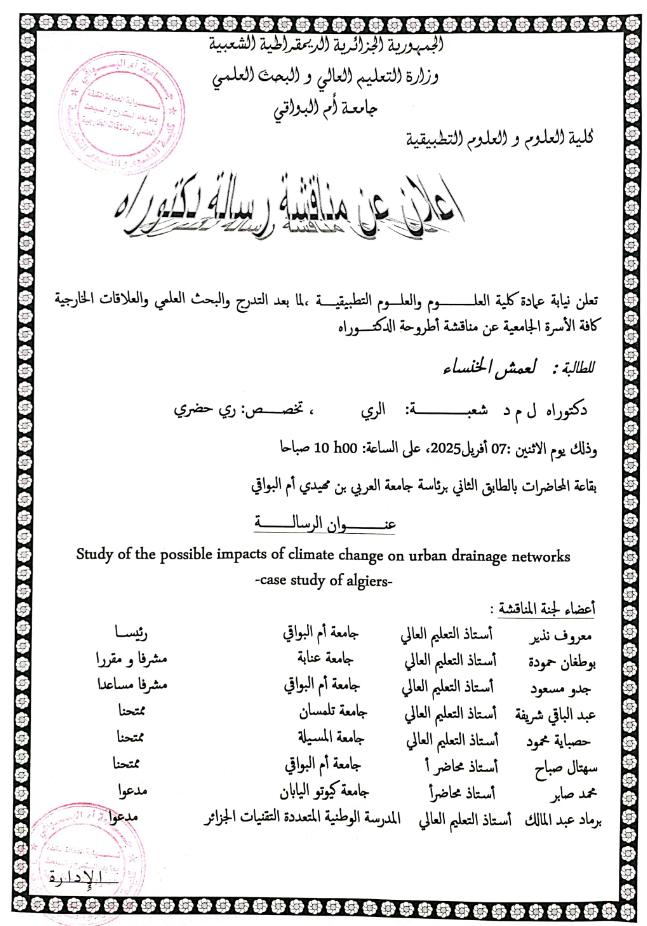 الجمهورية الجزائرية الديمقراطية الشعبية
وزارة التعليم العالي و البحث العلمي
جامعة أم البواقي
كلية العلوم و العلوم التطبيقية
اعلان عن مناقشة رسالة دكتوراه
تعلن نيابة عمادة كلية العلـــــــوم والعلـــوم التطبيقيـــة ،لما بعد التدرج والبحث العلمي والعلاقات الخارجية
كافة الأسرة الجامعية عن مناقشة أطروحة الدكتـــوراه
للطالبة : لعمش الخنساء
دكتوراه ل م د شعبـــــــــــة: الري ، تخصــص: ري حضري
وذلك يوم الاثنين :07 أفريل2025، على الساعة: 10 h00 صباحا
بقاعة المحاضرات بالطابق الثاني برئاسة جامعة العربي بن مهيدي أم البواقي
عنـــــــوان الرسالـــــة
Study of the possible impacts of climate change on urban drainage networks
-case study of algiers-
أعضاء لجنة المناقشة :
معروف نذير أستاذ التعليم العالي جامعة أم البواقي رئيســا
بوطغان حمودة أستاذ التعليم العالي جامعة عنابة مشرفا و مقررا
جدو مسعود أستاذ التعليم العالي جامعة أم البواقي مشرفا مساعدا
عبد الباقي شريفة أستاذ التعليم العالي جامعة تلمسان ممتحنا
حصباية محمود أستاذ التعليم العالي جامعة المسيلة ممتحنا
سهتال صباح أستاذ محاضر أ جامعة أم البواقي ممتحنا
محمد صابر أستاذ محاضرأ جامعة كيوتو اليابان مدعوا
برماد عبد المالك أستاذ التعليم العالي المدرسة الوطنية المتعددة التقنيات الجزائر مدعوا
الإدارة